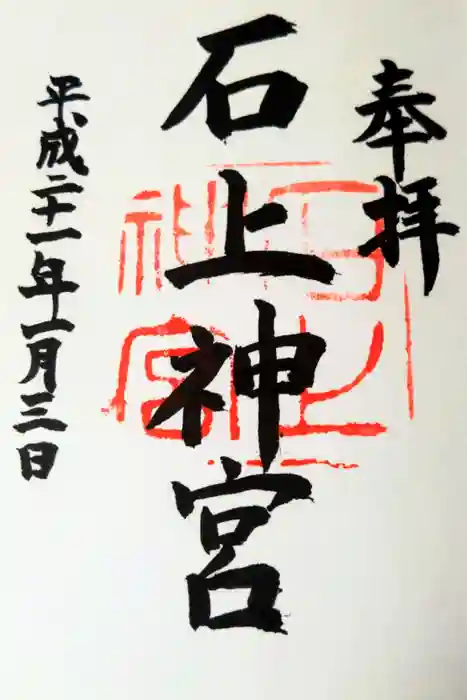 奉拝
石上神宮
平成二十一年一月三日
石上
神宮